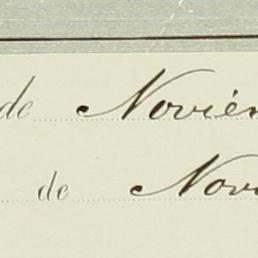 de Noviem
de Novi